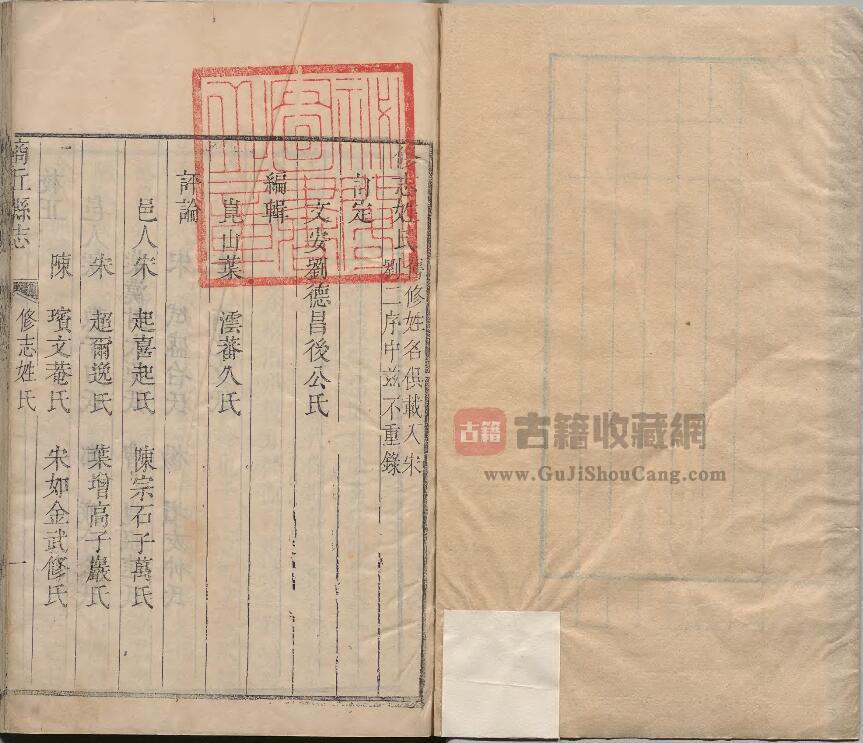 修志姓氏舊修姓名俱載入宋劉二序中茲不重錄
訂定
文安劉德昌後公氏
編輯
崑山葉澐蕃久氏
評論
邑人宋起喜起氏 陳宗石子萬氏
宋超爾逸氏 葉增高子巖氏
陳璸文菴氏 宋如金武修氏
商丘縣志 修志姓氏 一
古籍 古籍收藏網
www.GuJiShouCang.com